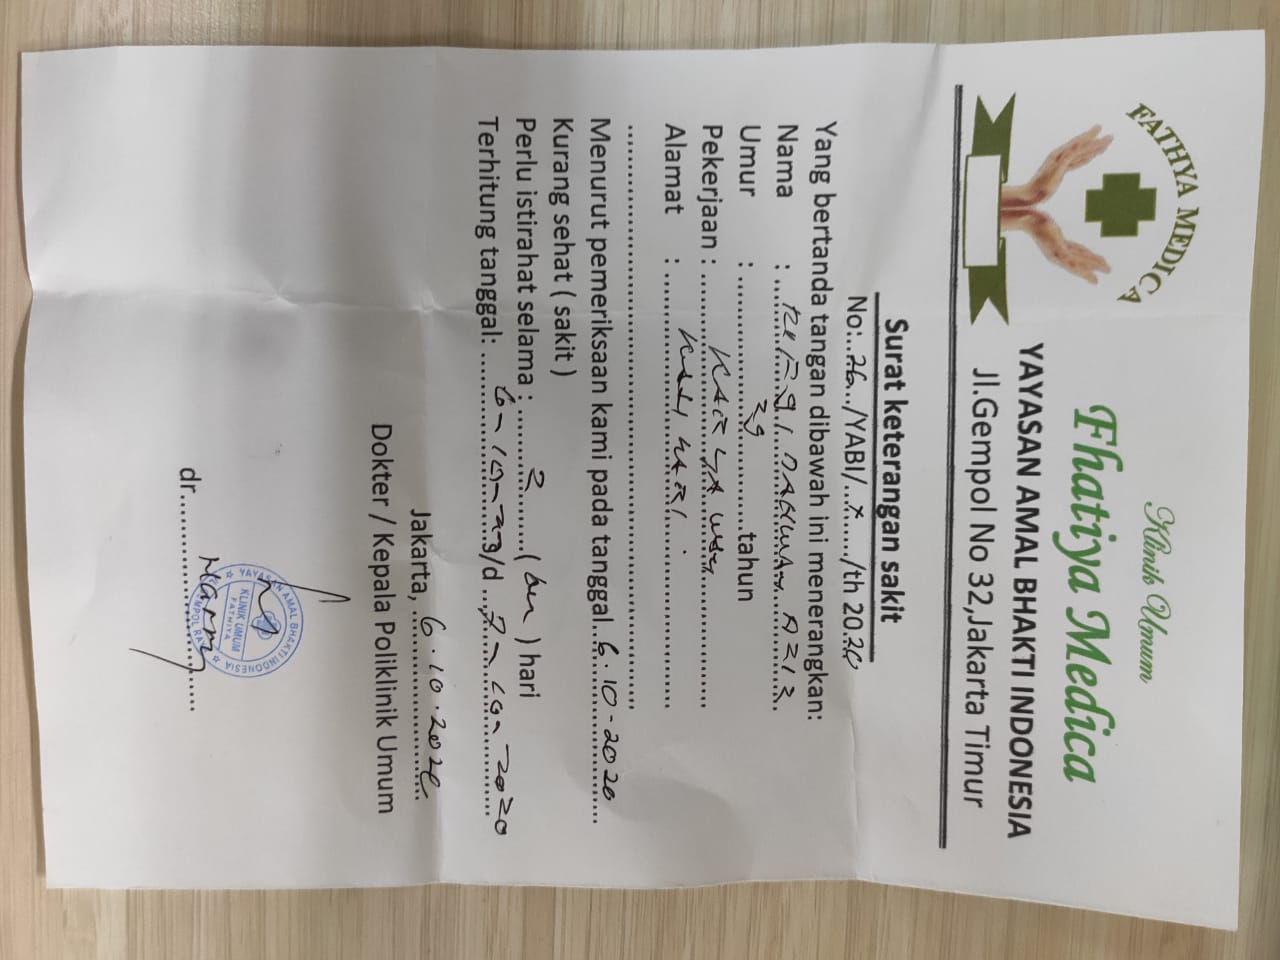 FATHYA MEDICA
Klinik Umum
Fhatiya Medica
YAYASAN AMAL BHAKTI INDONESIA
Jl.Gempol No 32,Jakarta Timur
Surat keterangan sakit
No:..26../YABI/..x...../th 2020
Yang bertanda tangan dibawah ini menerangkan:
Nama :
Umur : ....................29..............tahun
Pekerjaan :
Alamat :
Menurut pemeriksaan kami pada tanggal..6.10-2020
Kurang sehat ( sakit )
Perlu istirahat selama : ..........2........( ) hari
Terhitung tanggal: s/d ..7-10-2020
Jakarta, ..6.10.2020
Dokter / Kepala Poliklinik Umum
YAYASAN AMAL BHAKTI INDONESIA
KLINIK UMUM
FATHIYA
dr.